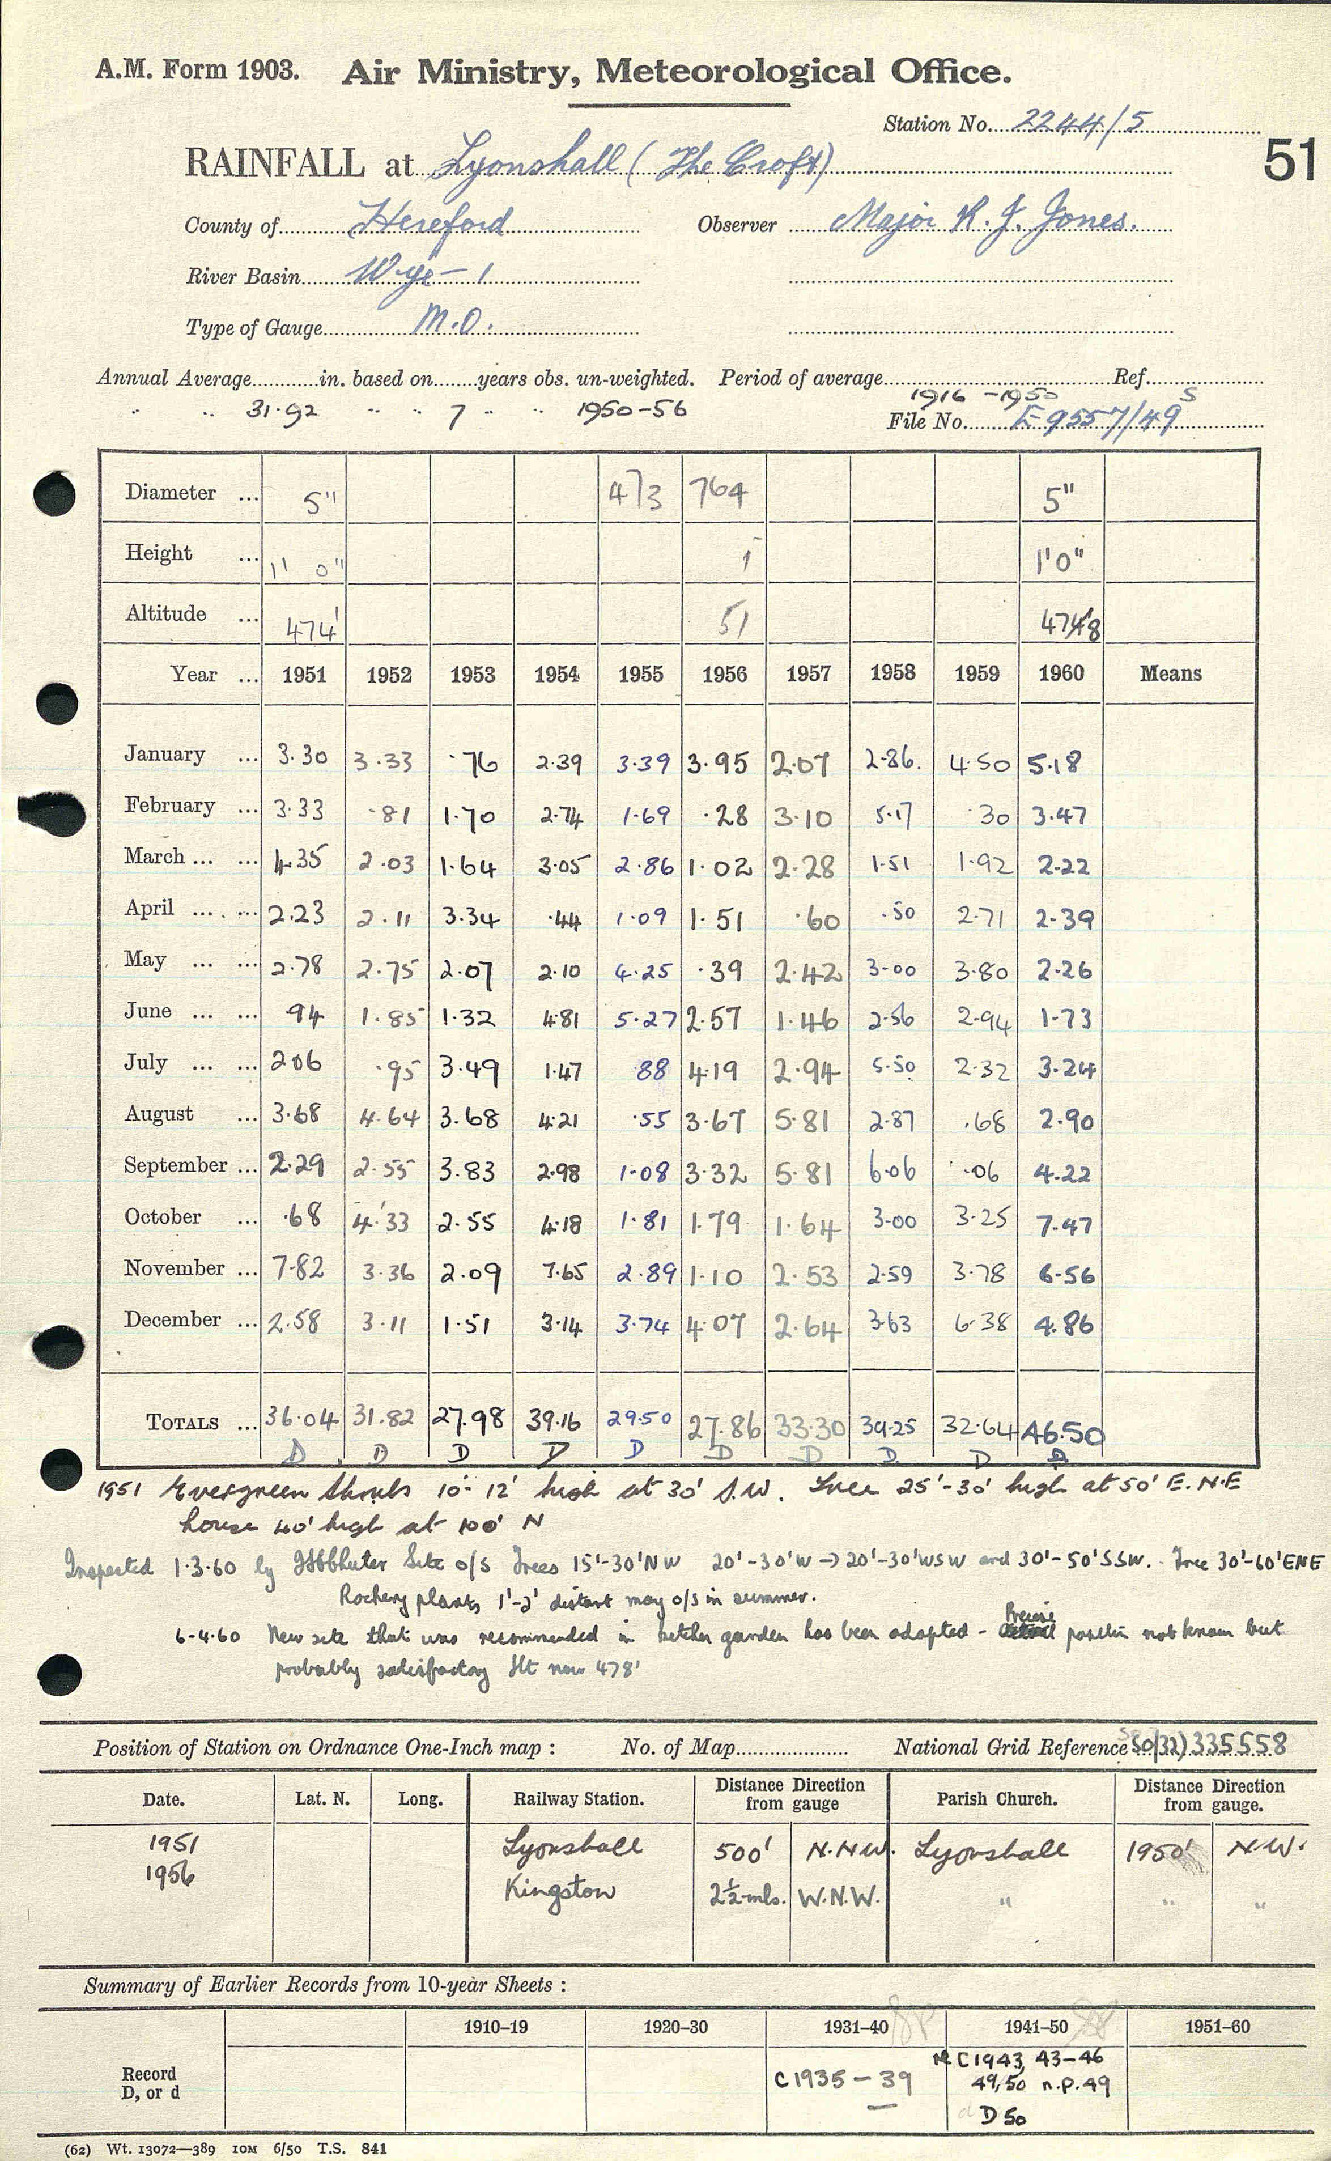 A.M. Form 1903. Air Ministry, Meteorological Office.
Station No. 2244/5
51
RAINFALL at Lyonshall (The Croft)
County of Hereford Observer Major R. J. Jones.
River Basin Wye - 1
Type of Gauge M.O.
Annual Average in. based on years obs. un-weighted. Period of average Ref.
" " 31.92 " " 7 " " 1950-56 1916 - 1950 S
File No. E9557/49
Diameter ... 5" 473 764 5"
Height ... 1' 0" 1 1'0"
Altitude ... 474' 51 478
Year ... 1951 1952 1953 1954 1955 1956 1957 1958 1959 1960 Means
January ... 3.30 3.33 .76 2.39 3.39 3.95 2.07 2.86. 4.50 5.18
February ... 3.33 .81 1.70 2.74 1.69 .28 3.10 5.17 .30 3.47
March ... ... 4.35 2.03 1.64 3.05 2.86 1.02 2.28 1.51 1.92 2.22
April ... ... 2.23 2.11 3.34 .44 1.09 1.51 .60 .50 2.71 2.39
May ... ... 2.78 2.75 2.07 2.10 4.25 .39 2.42 3.00 3.80 2.26
June ... ... 94 1.85 1.32 4.81 5.27 2.57 1.46 2.56 2.94 1.73
July ... ... 2.06 .95 3.49 1.47 88 4.19 2.94 5.50 2.32 3.24
August ... 3.68 4.64 3.68 4.21 .55 3.67 5.81 2.87 .68 2.90
September ... 2.29 2.55 3.83 2.98 1.08 3.32 5.81 6.06 .06 4.22
October ... .68 4.33 2.55 4.18 1.81 1.79 1.64 3.00 3.25 7.47
November ... 7.82 3.36 2.09 7.65 2.89 1.10 2.53 2.59 3.78 6.56
December ... 2.58 3.11 1.51 3.14 3.74 4.07 2.64 3.63 6.38 4.86
TOTALS ... 36.04 31.82 27.98 39.16 29.50 27.86 33.30 39.25 32.64 46.50
D D D D D D D D D D
1951 Evergreen shrubs 10'-12' high at 30' S.W. Tree 25'-30' high at 50' E.N.E
house 40' high at 100' N
Inspected 1.3.60 by Site o/s Trees 15'-30'NW 20'-30'W → 20'-30'WSW and 30'-50'SSW. Tree 30'-60'ENE
Rockery plants 1'-2' distant may o/s in summer.
6-4.60 New site that was recommended in kitchen garden has been adopted - Precise position not known but
probably satisfactory Ht now 478'
Position of Station on Ordnance One-Inch map : No. of Map National Grid Reference SO(32)335558
Date. Lat. N. Long. Railway Station. Distance from gauge Direction Parish Church. Distance from gauge. Direction
1951 Lyonshall 500' N.N.W. Lyonshall 1950' N.W.
1956 Kingston 2½ mls. W.N.W. " " "
Summary of Earlier Records from 10-year Sheets :
1910–19 1920–30 1931–40 1941–50 1951–60
Record D, or d C1935 - 39 C1943, 43-46
49,50 n.p.49
D 50
(62) Wt. 13072—389 10M 6/50 T.S. 841